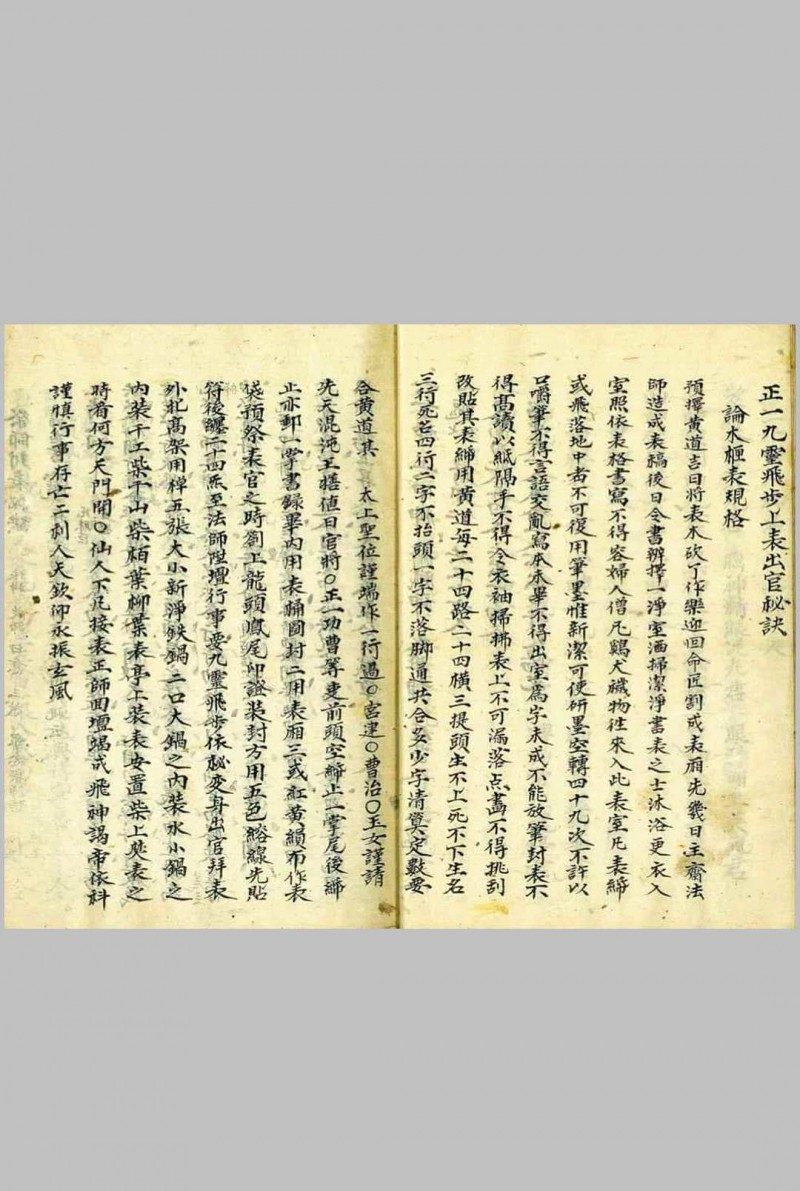 正一九靈飛步上表出官秘訣
論木櫃表規格
預擇黃道吉日將表木砍了作樂迎回命匠割成表廂先幾日主齋法
師造成表稿後日令書辦擇一淨室洒掃潔淨書表之士沐浴更衣入
室照依表格書寫不得容婦人僧尼鷄犬穢物往來入此表室凡表締
或飛落地中者不可復用筆墨惟新潔可使研墨空轉四十九次不許以
口嚼筆不得言語交亂寫本未畢不得出室為字未成不能放筆封表不
得高讀以紙隔手不得令衣袖掃拂表上不可漏落点畫不得挑刮
改貼其表締用黃道每二十四路二十四橫三提頭生不上死不下生名
三行死名四行二字不抬頭一字不落脚通共合多少字清算定數要
合黃道其 太上聖位謹端作一行過〇宮建〇曹治〇玉女謹請
先天混沌王禧值日官將〇正一功曹等吏前頭空締止一掌尾後締
止亦卸一掌書錄畢內用表桶圓封二用表廂三或紅黃絹布作表
袋預祭表官之時劄上龍頭鳳尾印證裝封方用五色絡線先貼
符後纏二十四炁至法師陞壇行事要九靈飛步依秘变身出官拜表
外化高架用禅五張大小新淨鉄鍋二口大鍋之內裝水小鍋之
內裝干工柴干山柴栢葉柳葉表亭上裝表安置柴上焚表之
時看何方天門開〇仙人下凡接表正師囬壇竭成飛神謁帝依科
謹慎行事存亡二利人天欽仰永振玄風